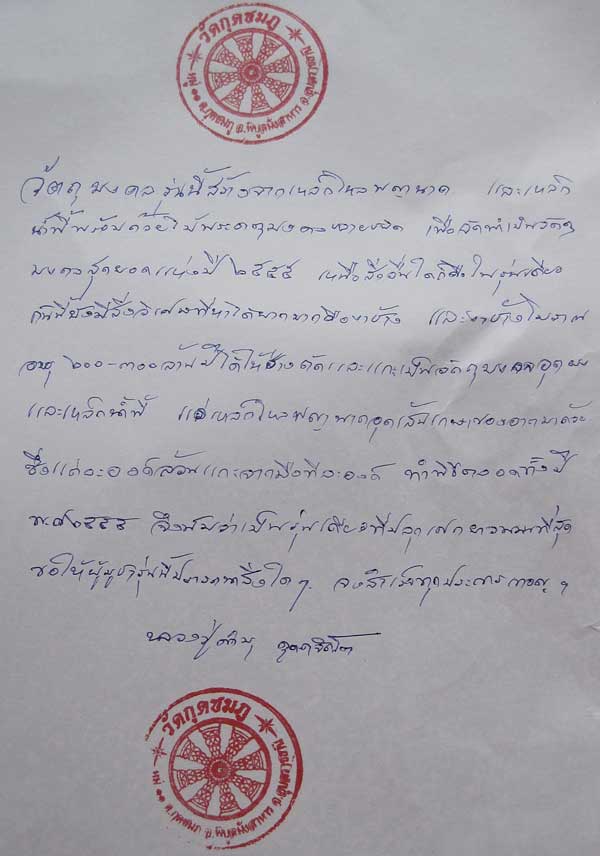 วัดกุดชมภู
หมู่ ๑๑ ต.กุดชมภู อ.พิบูลมังสาหาร จ.อุบลราชธานี
วัตถุมงคลรุ่นนี้สร้างจากเหล็กไหลพญานาค และเหล็ก
น้ำพี้พร้อมด้วยไม้พระธาตุพนม เพื่อจัดทำเป็นวัตถุ
มงคลสุดยอดแห่งปี ๒๕๕๕ เหนือสิ่งอื่นใดก็คือในรุ่นเดียว
กันนี้ยังมีสิ่งวิเศษที่หาได้ยากมากคืองาช้าง และงาช้างโบราณ
อายุ ๒๐๐-๓๐๐ ล้านปีได้ให้ช่างตัดและแกะเป็นวัตถุมงคลอุดผง
และเหล็กน้ำพี้ แร่เหล็กไหลพญานาคอุดเส้นเกษาของอาตมาด้วย
ซึ่งแต่ละองค์ล้วนแกะจากมือทีละองค์ ทำพิธีตลอดทั้งปี
พ.ศ ๒๕๕๕ จึงนับว่าเป็นรุ่นเดียวที่ปลุกเสกยาวนานที่สุด
ขอให้ผู้บูชารุ่นนี้ปรารถนาสิ่งใดๆ จงสำเร็จทุกประการ ๆ
หลวงปู่คำบุ คุตตจิตโต
วัดกุดชมภู
หมู่ ๑๑ ต.กุดชมภู อ.พิบูลมังสาหาร จ.อุบลราชธานี